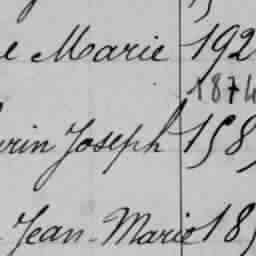 e Marie 192
1874
rin Joseph 158
Jean-Marie 18